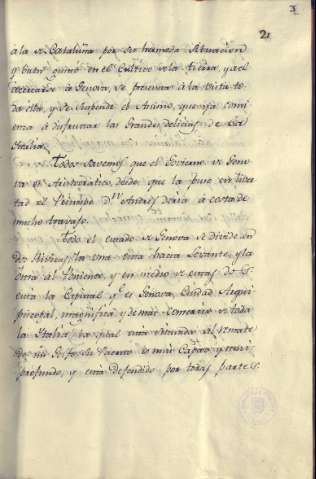 21
a la de Cataluña por su humeda situacion
y buen gusto en el cultivo de la tierra, y al
acercarse a Genova, se presenta à la vista to-
da esta, y se suspende el Animo, que empieza comi-
enza à disfrutar las grandes delicias de la
Italia.
Todos savemos que el Govierno de Geno-
va es Aristocratico desde que la puso en liver-
tad el Principe Dn Andres Doria à costa de
mucho travajo.
Todo el estado de Genova se divide en
dos Rivieras, la una esta hacia Levante, y la
otra al Poniente, y en medio de estas se
la Capital qe es Genova, Ciudad Arqui-
Piscopal, magnifica y de mas comercio de toda
la Italia,
de un Golfo. Su Puerto es mui Capaz, y mui
profundo, y esta defendido por todas partes